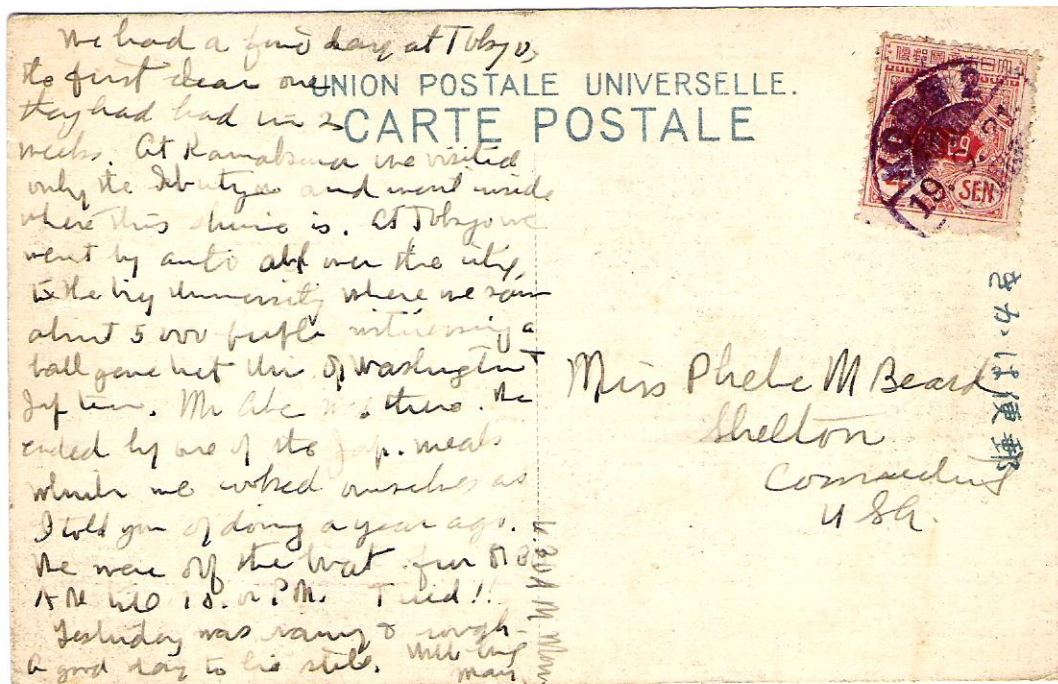 We had a fine day at Tokyo,
the first clear one
they had had in 2
weeks. At Kamakura we visited
only the and went inside
where this shrine is. At Tokyo we
went by auto all over the city,
to the big University where we saw
about 5000 people witnessing a
ball game bet Uni of Washington &
Jap team. Mr Abe was there. We
ended by one of the Jap. meals
which we cooked ourselves as
I told you of doing a year ago.
We were off the boat from 8
AM till 10. P.M. Tired!!
Yesterday was rainy & rough-
a good day to lie still. With love
Mary
UNION POSTALE UNIVERSELLE.
CARTE POSTALE
KOBE 2
19
SEN
きかは便郵
Miss Phebe M Beard
Shelton
Connecticut
USA.